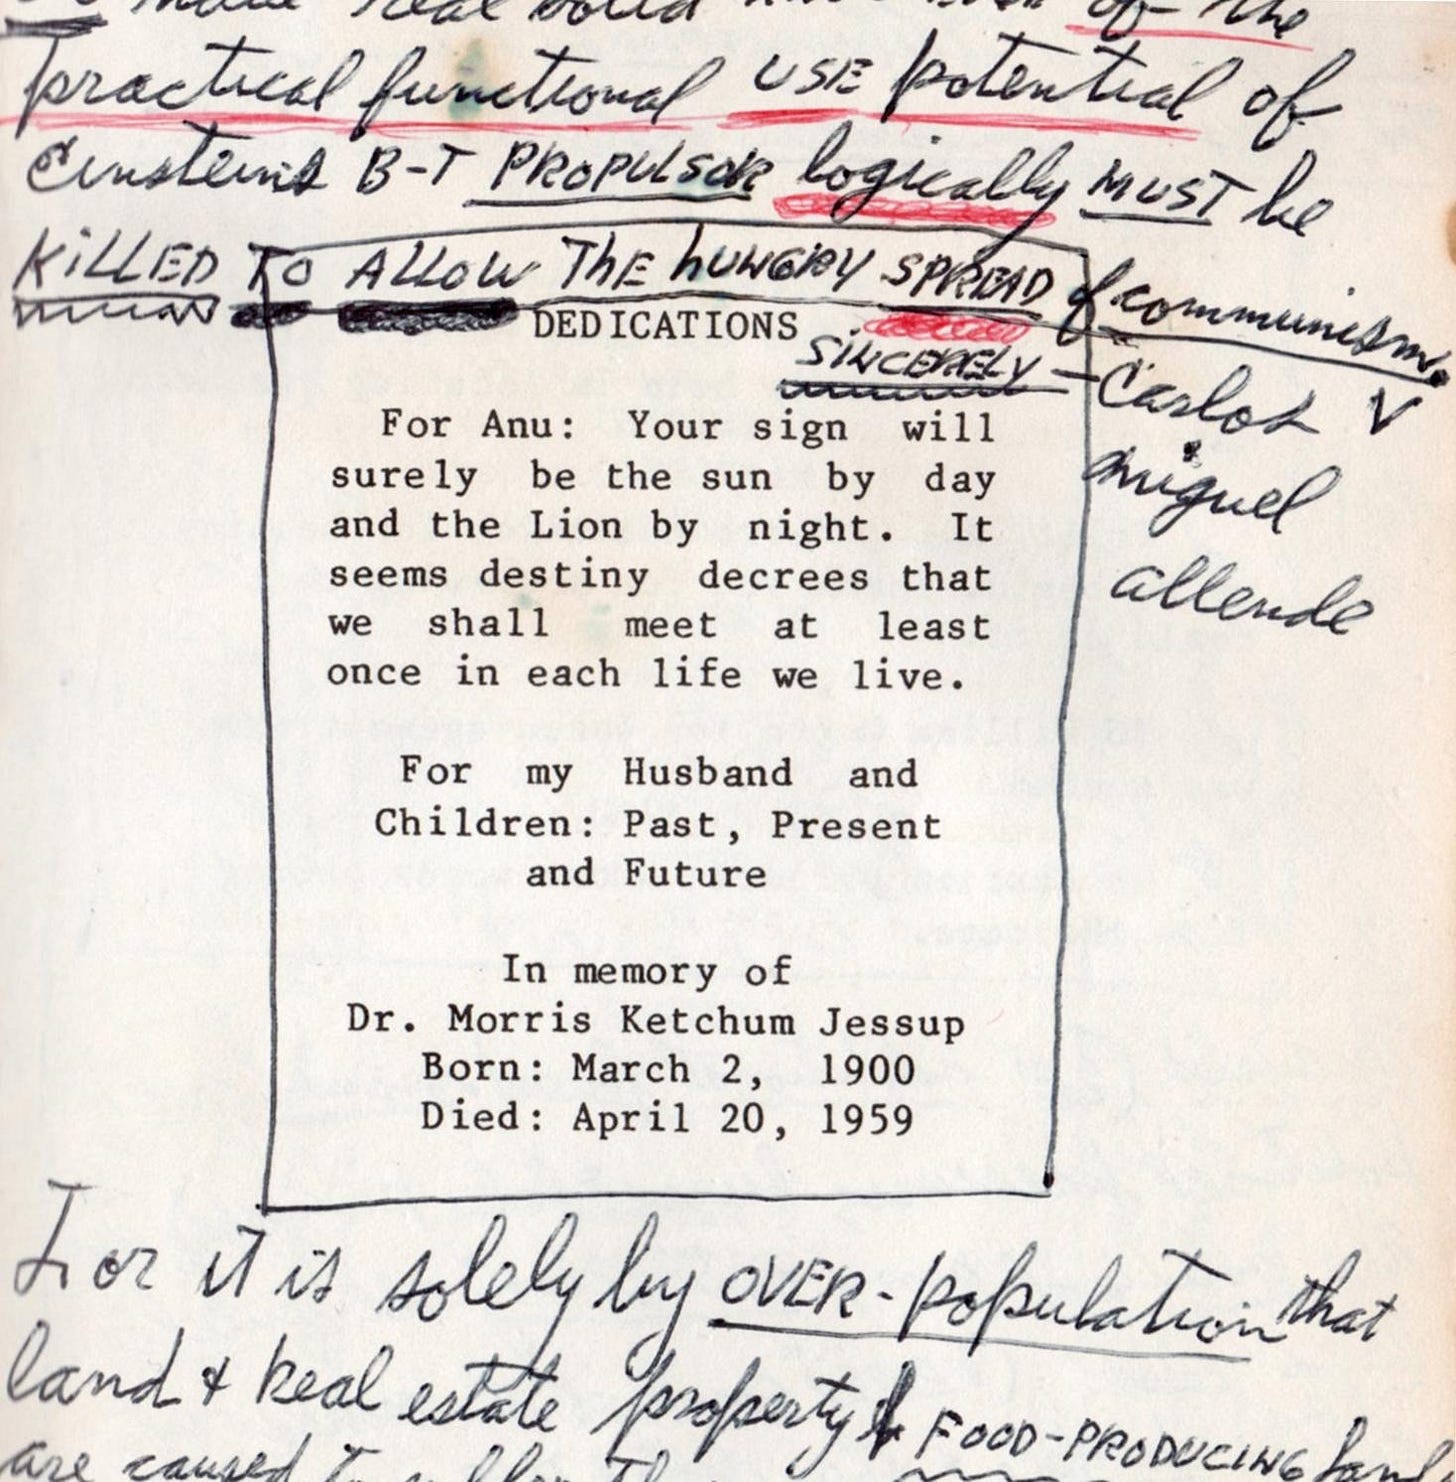 make real of the
practical functional USE potential of
Einsteins B-T PROPULSOR logically MUST be
KiLLED TO ALLOW ThE hUNGRY SPREAD of communism.
DEDICATIONS
SiNCERELY — Carlos
miguel
allende
For Anu: Your sign will
surely be the sun by day
and the Lion by night. It
seems destiny decrees that
we shall meet at least
once in each life we live.
For my Husband and
Children: Past, Present
and Future
In memory of
Dr. Morris Ketchum Jessup
Born: March 2, 1900
Died: April 20, 1959
For it is solely by OVER-population that
land & Real estate property & FOOD-PRODUCING land
are caused to